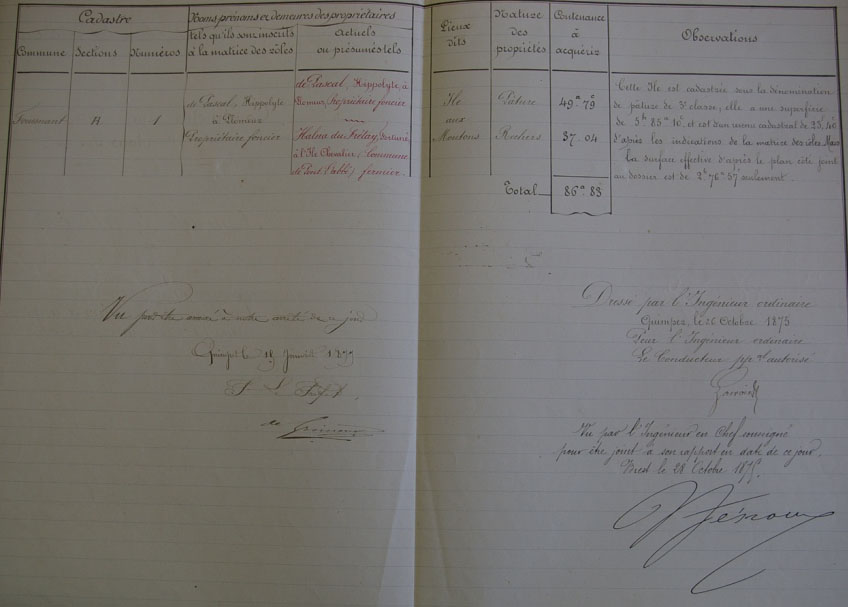 Cadastre
Commune Sections Numéros
Noms, prénoms et demeures des propriétaires
tels qu'ils sont inscrits
à la matrice des rôles
Actuels
ou présumés tels
Lieux
dits
Nature
des
propriétés
Contenance
à
acquérir
Observations
Fouesnant H 1
de Pascal, Hippolyte
à
Propriétaire foncier
de Pascal, Hippolyte, à
propriétaire foncier
Halna du Frétay,
à l'Ile Chevalier (Commune
de Pont l'abbé) fermier.
Ile
aux
Moutons
Pâture
Rochers
49a.79
37.04
Total 86a.83
Cette Ile est cadastrée sous la dénomination
de pâture de 3e classe, elle a une superficie
de 5h 85a 10c et est d'un revenu cadastral de
d'après les indications de la matrice des rôles. Mais
la surface effective d'après le plan côté joint
au dossier est de 2h 76a 57c seulement.
Vu pour être annexé à notre arrêté de ce jour
Quimper le 18 Janvier 1877
Le Préfet,
Dressé par l'Ingénieur ordinaire
Quimper, le 26 Octobre 1875
Pour l'Ingénieur ordinaire
Le Conducteur autorisé
Vu par l'Ingénieur en Chef soussigné
pour être joint à son rapport en date de ce jour.
Brest le 28 Octobre 1875.